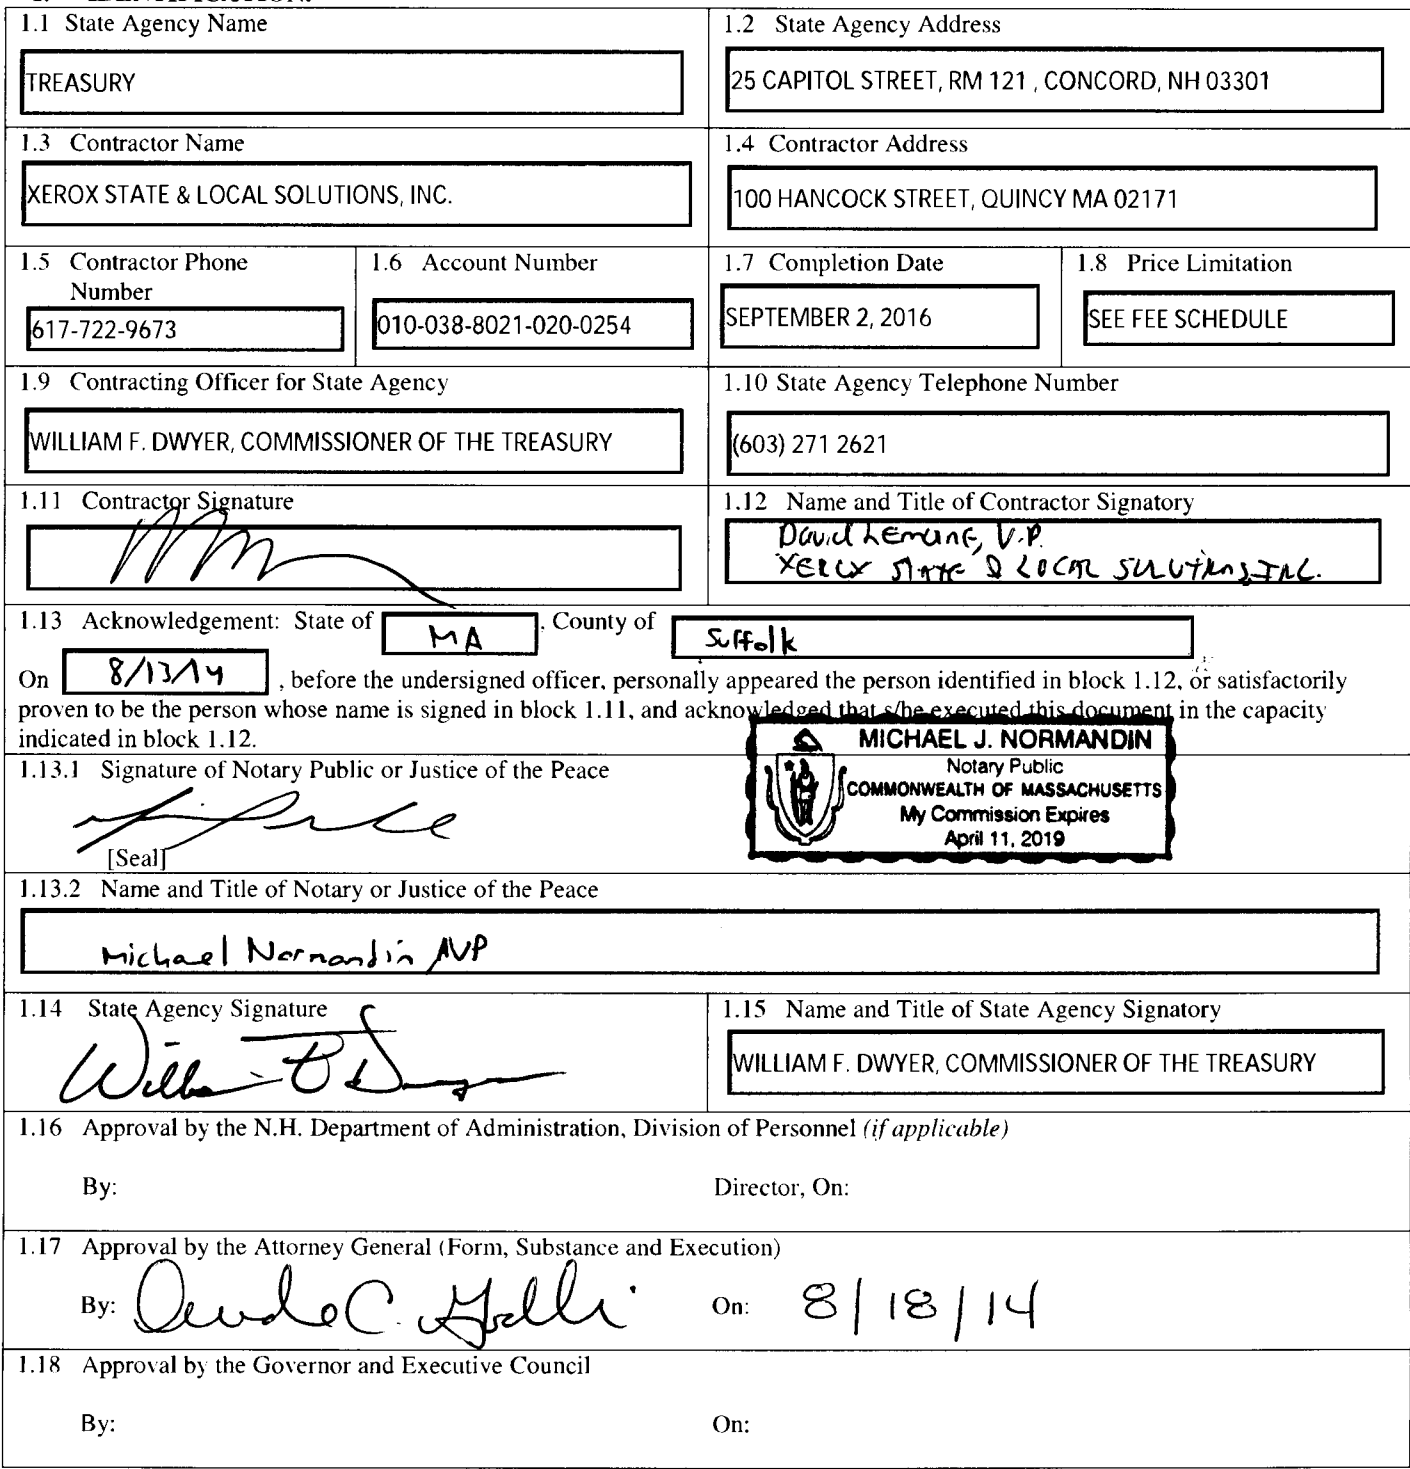 1.1 State Agency Name
TREASURY
1.2 State Agency Address
25 CAPITOL STREET, RM 121 , CONCORD, NH 03301
1.3 Contractor Name
XEROX STATE & LOCAL SOLUTIONS, INC.
1.4 Contractor Address
100 HANCOCK STREET, QUINCY MA 02171
1.5 Contractor Phone
Number
617-722-9673
1.6 Account Number
010-038-8021-020-0254
1.7 Completion Date
SEPTEMBER 2, 2016
1.8 Price Limitation
SEE FEE SCHEDULE
1.9 Contracting Officer for State Agency
WILLIAM F. DWYER, COMMISSIONER OF THE TREASURY
1.10 State Agency Telephone Number
(603) 271 2621
1.11 Contractor Signature
1.12 Name and Title of Contractor Signatory
David V.P.
XEROX STATE & LOCAL SOLUTIONS, INC.
1.13 Acknowledgement: State of MA , County of Suffolk
On 8/13/14 , before the undersigned officer, personally appeared the person identified in block 1.12, or satisfactorily
proven to be the person whose name is signed in block 1.11, and acknowledged that s/he executed this document in the capacity
indicated in block 1.12.
MICHAEL J. NORMANDIN
Notary Public
COMMONWEALTH OF MASSACHUSETTS
My Commission Expires
April 11, 2019
1.13.1 Signature of Notary Public or Justice of the Peace
[Seal]
1.13.2 Name and Title of Notary or Justice of the Peace
Michael Normandin AVP
1.14 State Agency Signature
William F Dwyer
1.15 Name and Title of State Agency Signatory
WILLIAM F. DWYER, COMMISSIONER OF THE TREASURY
1.16 Approval by the N.H. Department of Administration, Division of Personnel (if applicable)
By: Director, On:
1.17 Approval by the Attorney General (Form, Substance and Execution)
By: C. On: 8/18/14
1.18 Approval by the Governor and Executive Council
By: On: